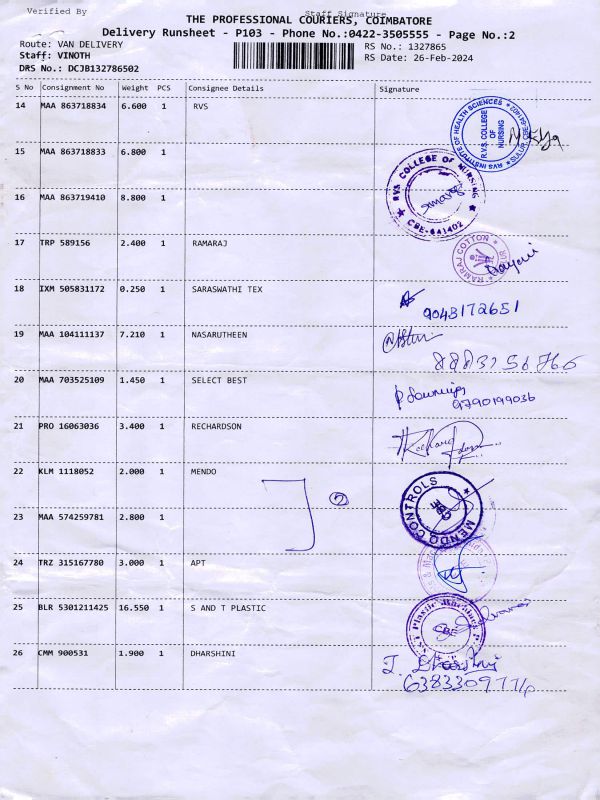 Verified By
Staff Signature
THE PROFESSIONAL COURIERS, COIMBATORE
Delivery Runsheet - P103 - Phone No.:0422-3505555 - Page No.:2
Route: VAN DELIVERY
RS No.: 1327865
Staff: VINOTH
RS Date: 26-Feb-2024
DRS No.: DCJB132786502
S No Consignment No Weight PCS Consignee Details Signature
14 MAA 863718834 6.600 1 RVS
RVS INSTITUTE OF HEALTH SCIENCES
R.V.S. COLLEGE OF NURSING
15 MAA 863718833 6.800 1
RVS COLLEGE OF NURSING
CBE-641402
16 MAA 863719410 8.800 1
17 TRP 589156 2.400 1 RAMARAJ
RAMRAJ COTTON
18 IXM 505831172 0.250 1 SARASWATHI TEX
9043172651
19 MAA 104111137 7.210 1 NASARUTHEEN
20 MAA 703525109 1.450 1 SELECT BEST
9790199036
21 PRO 16063036 3.400 1 RECHARDSON
22 KLM 1118052 2.000 1 MENDO
2
MENDO CONTROLS
CBE
23 MAA 574259781 2.800 1
24 TRZ 315167780 3.000 1 APT
25 BLR 5301211425 16.550 1 S AND T PLASTIC
CBE
26 CMM 900531 1.900 1 DHARSHINI